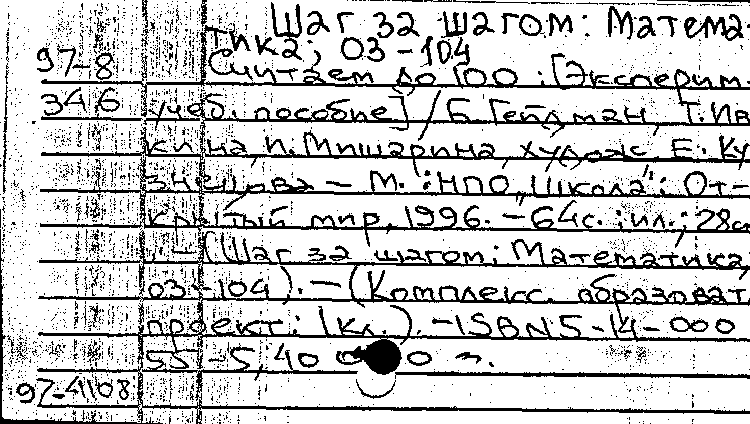 Шаг за шагом: Матема-
тика; 03-104
97-8 Считаем до 100 : [Эксперим.
346 учеб. пособие] / Б. Гейдман, Т. Ив
кина, И. Мишарина, худож. Е. Ку
знецова – М. : НПО „Школа" : От-
крытый мир, 1996. – 64с. : ил.; 28с
. – (Шаг за шагом; Математика,
03-104). – (Комплекс. образоват
проект: 1 кл.). – ISBN 5-14-000
55-5, 40 0 0 э.
97-4108